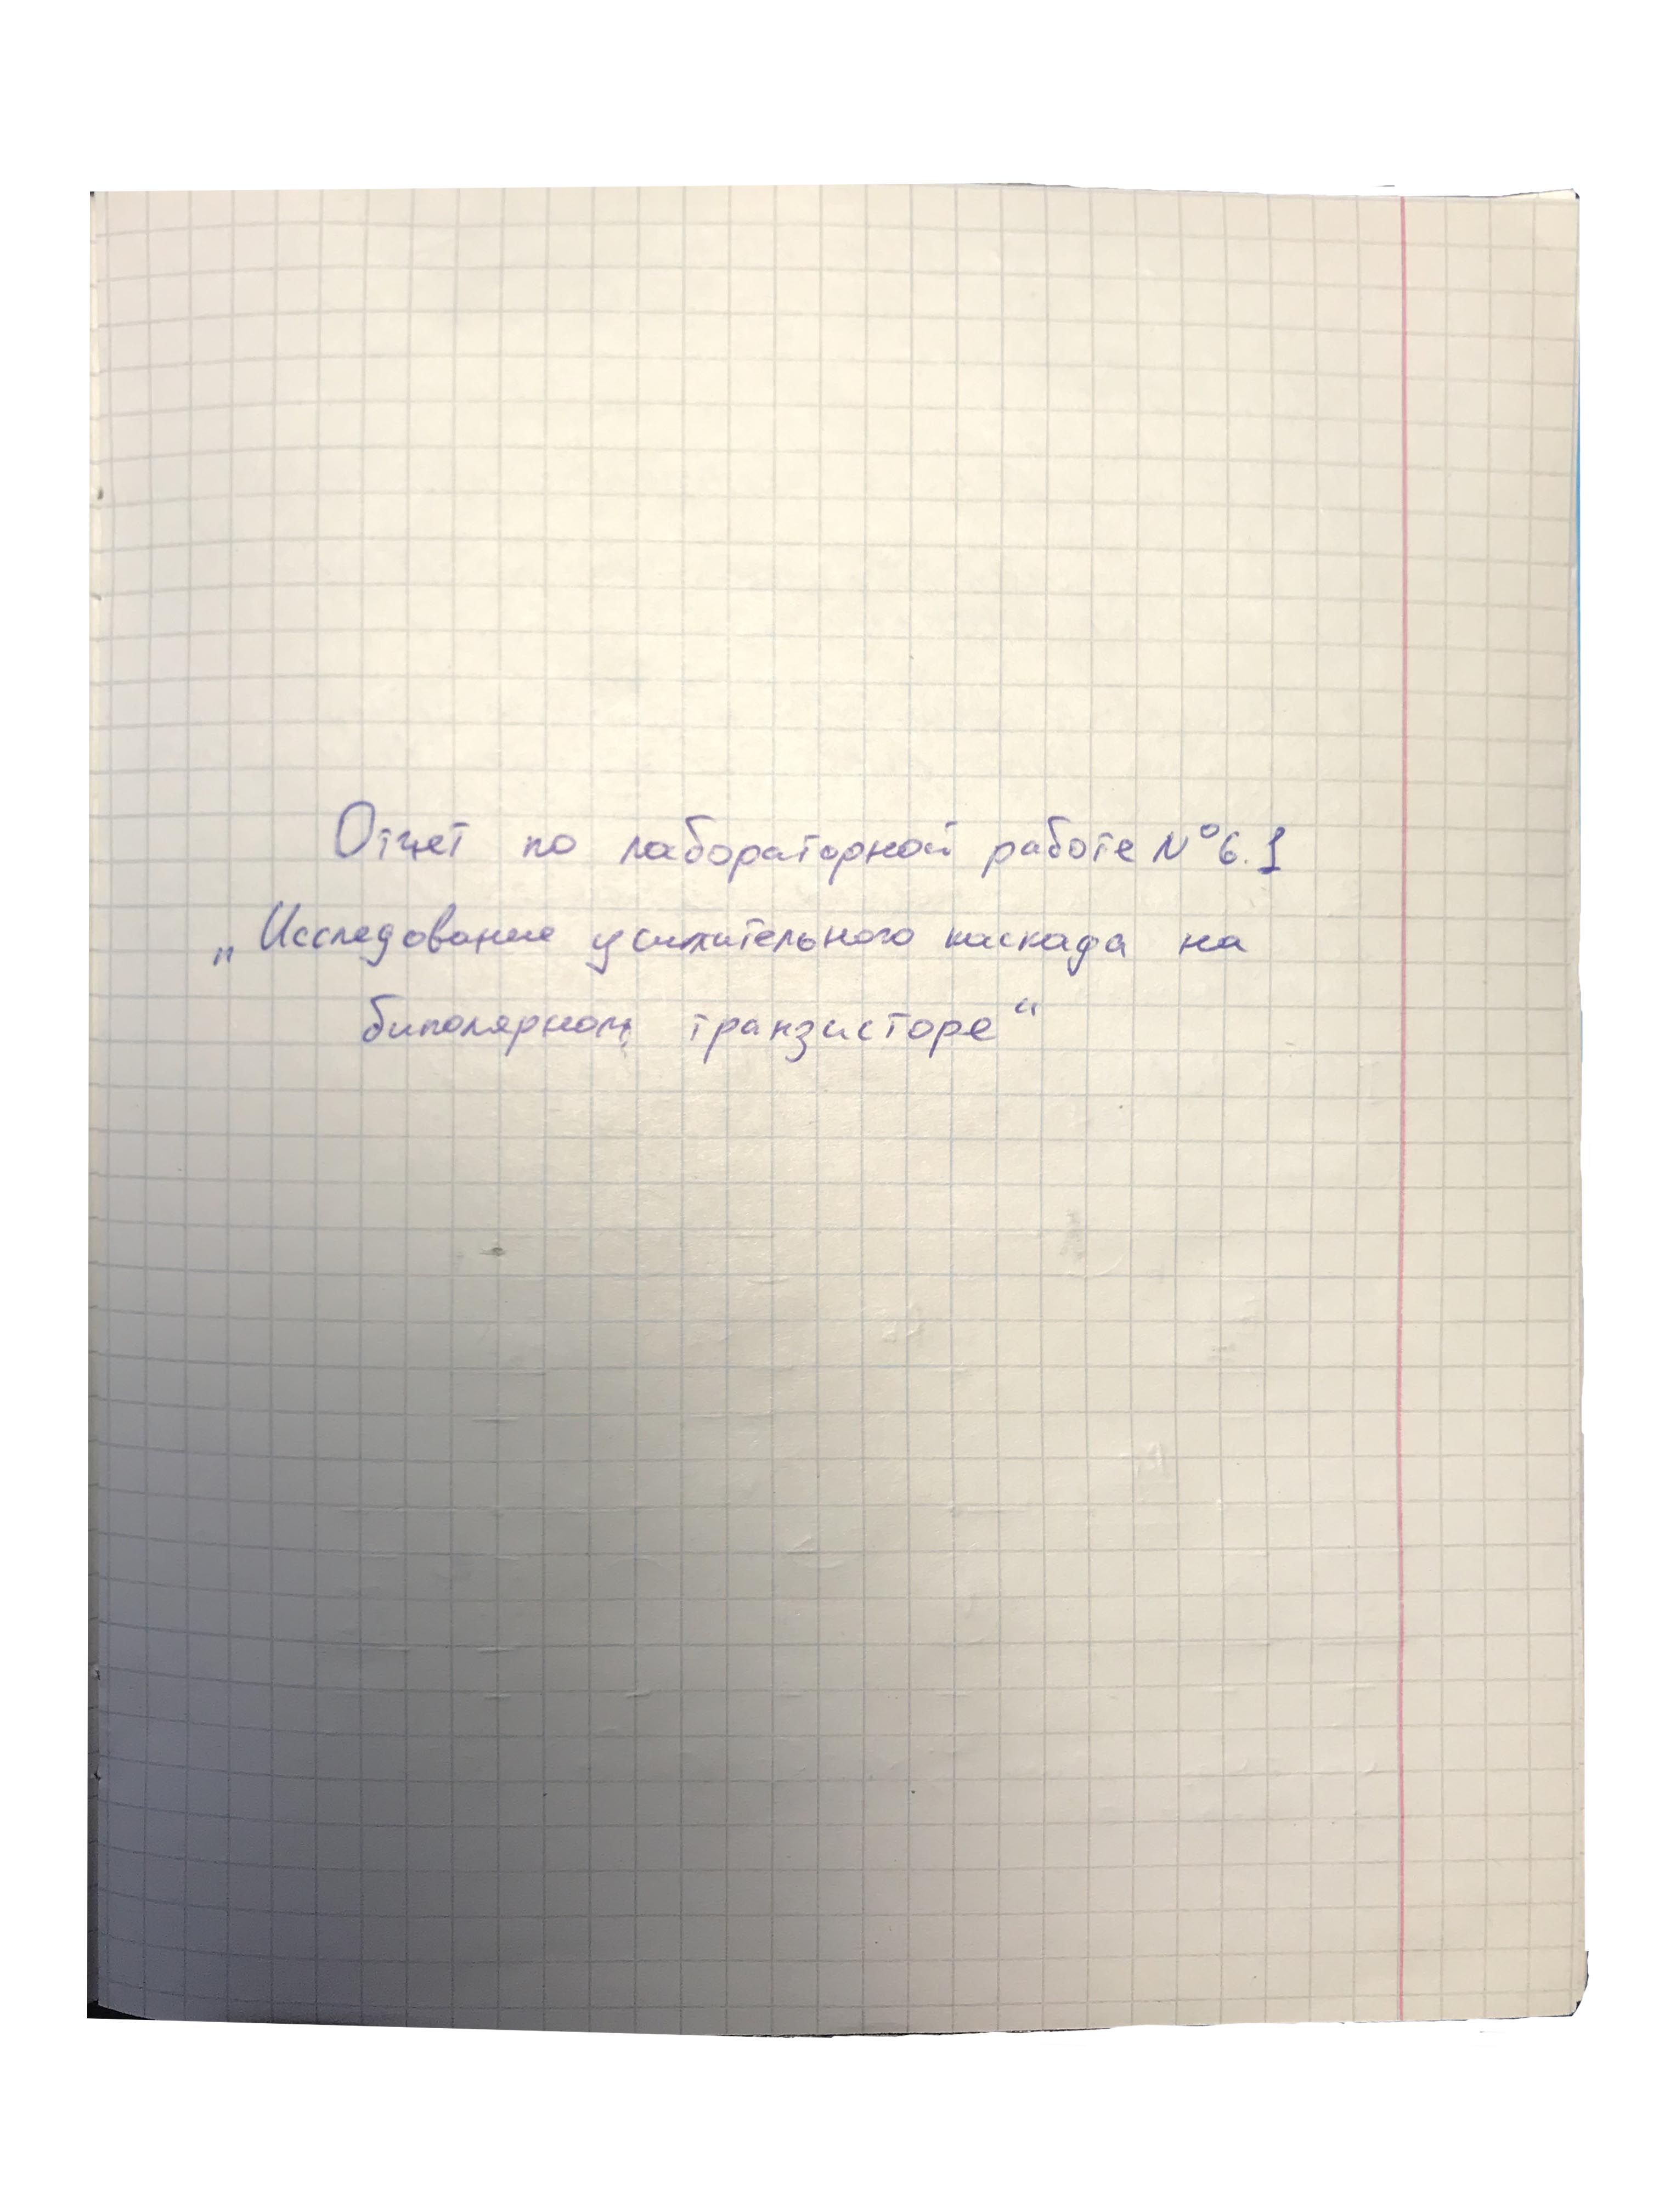 Отчет по лабораторной работе №6.1
„Исследование усилительного каскада на
биполярном транзисторе“